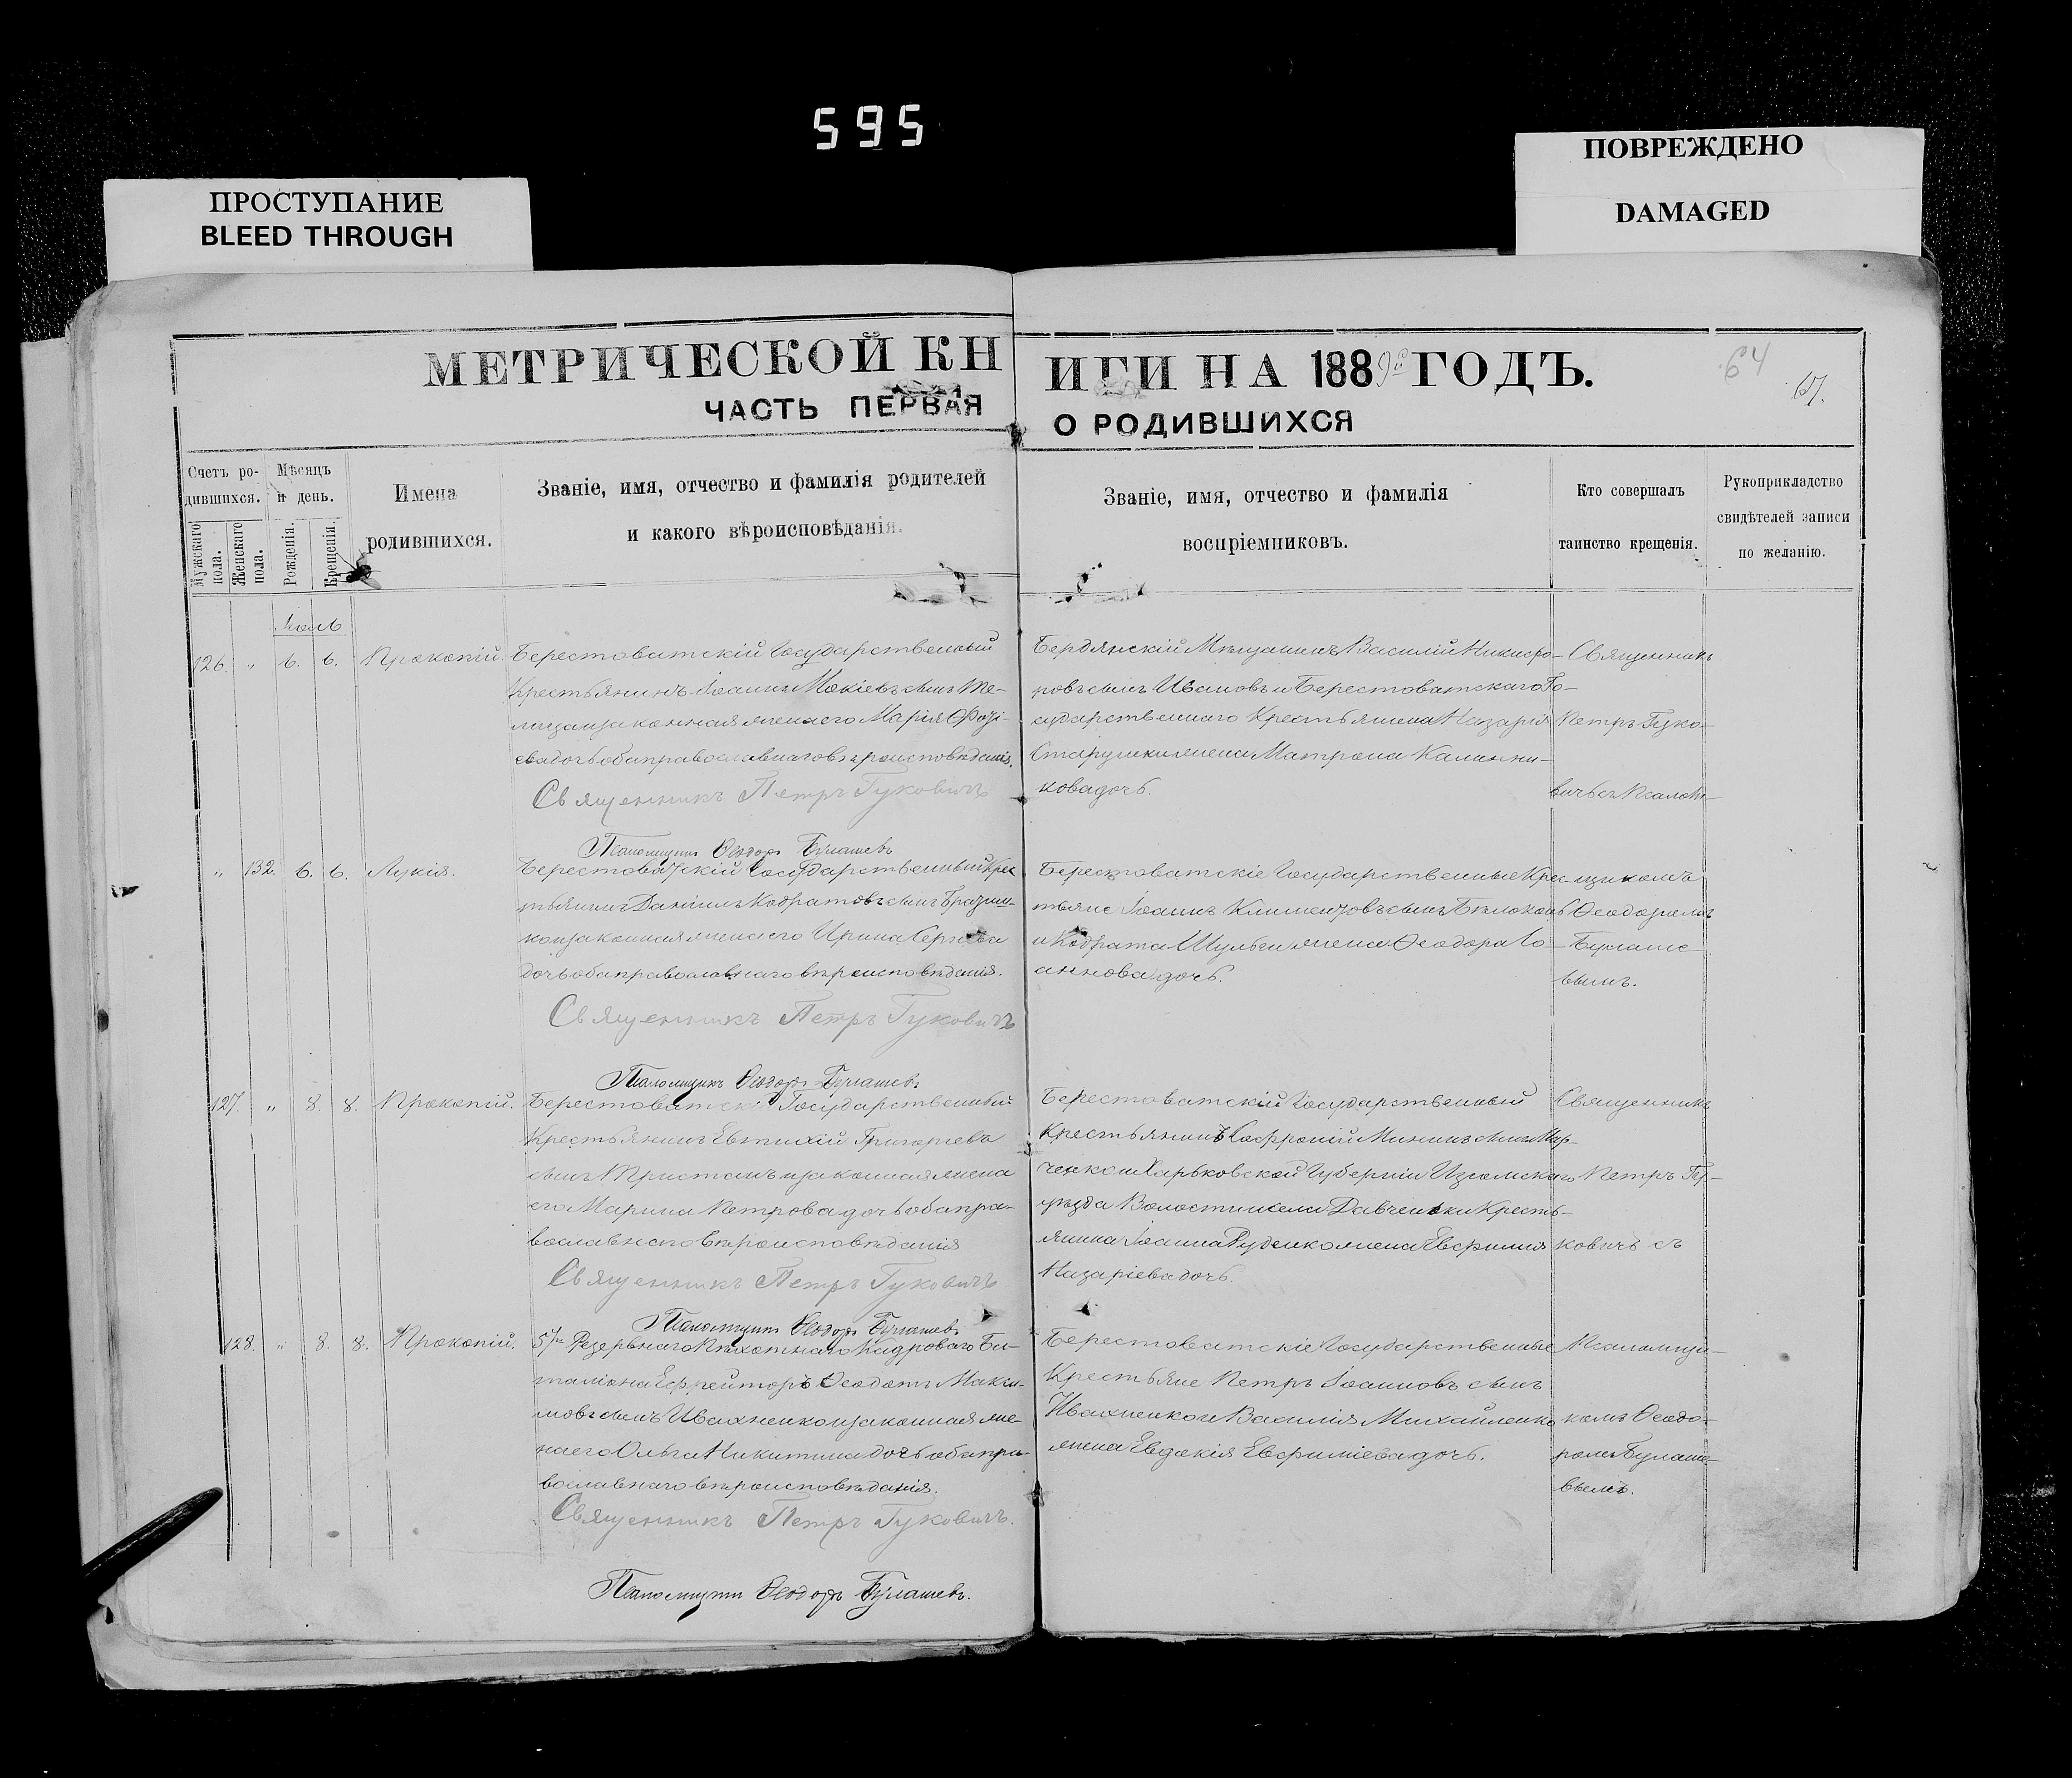 595
ПРОСТУПАНИЕ
BLEED THROUGH
ПОВРЕЖДЕНО
DAMAGED
МЕТРИЧЕСКОЙ КНИГИ НА 1889 ГОДЪ.
64
ЧАСТЬ ПЕРВАЯ О РОДИВШИХСЯ
Счетъ ро-
дившихся.
Мужскаго пола.
Женскаго пола.
Мѣсяцъ
и день.
Рожденія.
Крещенія.
Имена
родившихся.
Званіе, имя, отчество и фамилія родителей
и какого вѣроисповѣданія.
Званіе, имя, отчество и фамилія
воспріемниковъ.
Кто совершалъ
таинство крещенія.
Рукоприкладство
свидѣтелей записи
по желанію.
126. " 6. 6. Прокопій
Берестоватскій Государственный
Крестьянинъ Іоаннъ Мокіевъ сынъ
законная жена его Марія
дочь оба православнаго вѣроисповѣданія.
Священникъ Петръ Гуковичъ
Псаломщикъ Ѳеодоръ Булашевъ
Бердянскій Мѣщанинъ Василій Никифо-
ровъ сынъ Ивановъ и Берестоватскаго Го-
сударственнаго Крестьянина Назарія
жена Матрона Калинни-
кова дочь.
" 132. 6. 6. Лукія.
Берестоватскій Государственный Крес
тьянинъ Даніилъ Кодратовъ сынъ
законная жена его Ирина Сергѣева
дочь оба православнаго вѣроисповѣданія.
Священникъ Петръ Гуковичъ
Псаломщикъ Ѳеодоръ Булашевъ
Берестоватскіе Государственные Крес
тьяне Іоаннъ Климентовъ сынъ Бѣлоконь
и Кодрата Шульги жена Ѳеодора Іо-
аннова дочь.
Священникъ
Петръ Гуко-
вичъ съ Псалом-
щикомъ
Ѳеодоромъ
Булаше-
вымъ.
127. " 8. 8. Прокопій.
Берестоватскій Государственный
Крестьянинъ Евтихій Григорьевъ
сынъ Пристанъ и законная жена
его Марина Петрова дочь оба пра-
вославнаго вѣроисповѣданія
Священникъ Петръ Гуковичъ
Псаломщикъ Ѳеодоръ Булашевъ
Берестоватскій Государственный
Крестьянинъ Софроній Мининъ сынъ Мар-
ченко и Харьковской Губерніи Изюмскаго
уѣзда Волости и села Крестъ-
янина Іоанна Руденко жена Евфимія
Назаріева дочь.
128. " 8. 8. Прокопій.
5го Резервнаго Пѣхотнаго Кадроваго Ба-
таліона Ефрейторъ Ѳеодотъ Макси-
мовъ сынъ Ивахненко и законная же-
на его Ольга Никитина дочь оба пра-
вославнаго вѣроисповѣданія.
Священникъ Петръ Гуковичъ.
Псаломщикъ Ѳеодоръ Булашевъ.
Берестоватскіе Государственные
Крестьяне Петръ Іоанновъ сынъ
Ивахненко и Василія Михайленко
жена Евдокія Евфиміева дочь.
Священникъ
Петръ Гу-
ковичъ съ
Псаломщи-
комъ Ѳеодо-
ромъ Булаше-
вымъ.